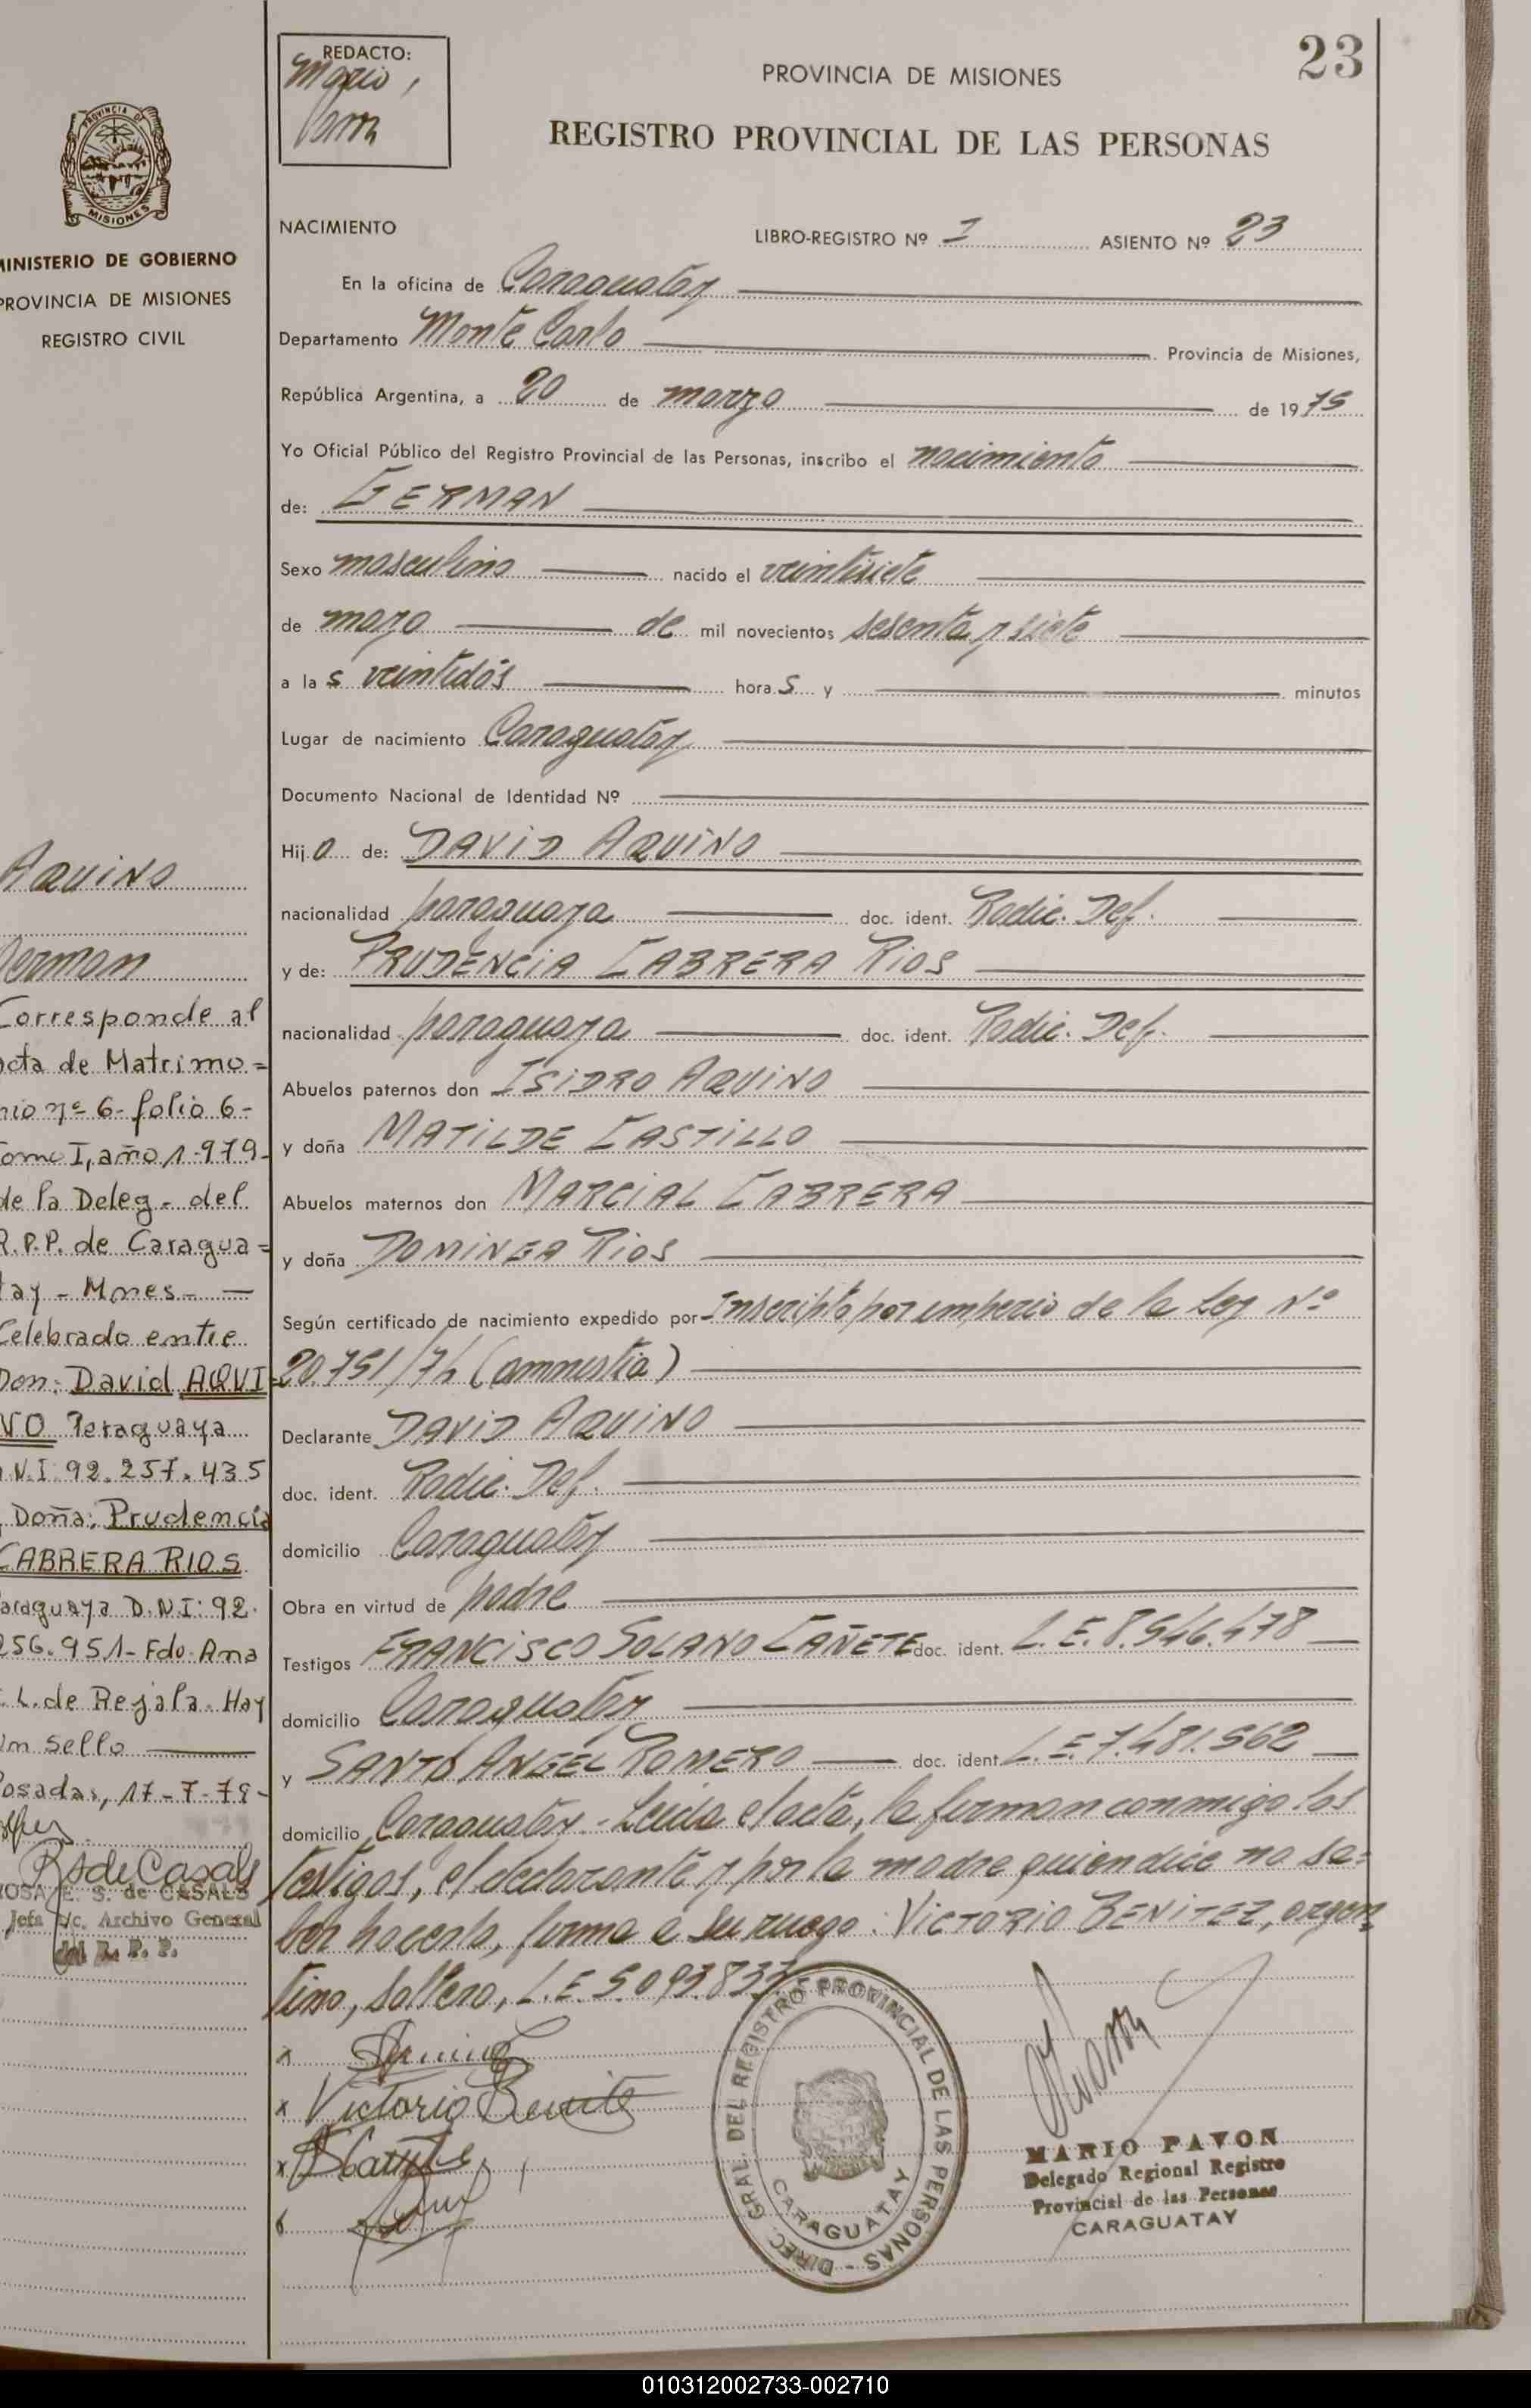 REDACTO:
Mario
Pavon
23
PROVINCIA DE MISIONES
REGISTRO PROVINCIAL DE LAS PERSONAS
PROVINCIA D
MISIONES
MINISTERIO DE GOBIERNO
PROVINCIA DE MISIONES
REGISTRO CIVIL
AQUINO
German
Corresponde al
acta de Matrimo=
nio nº 6- folio 6-
Tomo I, año 1.979-
de la Deleg- del
R.P.P. de Caragua=
tay - Mnes- —
Celebrado entre
Don: David AQUI=
NO Paraguaya
N.I. 92.257.435
Doña: Prudencia
CABRERA RIOS
Paraguaya D.N.I: 92.
256.951- Fdo. Ana
L. de Rejala. Hay
un sello
Posadas, 17-7-79-
Rsde Casals
ROSA E. S. de CASALS
Jefa a/c. Archivo General
del R. P. P.
NACIMIENTO
LIBRO-REGISTRO Nº I ASIENTO Nº 23
En la oficina de Caraguatay
Departamento Monte Carlo Provincia de Misiones,
República Argentina, a 20 de marzo de 1975
Yo Oficial Público del Registro Provincial de las Personas, inscribo el nacimiento
de: GERMAN
Sexo masculino nacido el veintisiete
de mayo de mil novecientos sesenta y siete
a la s veintidós hora s y minutos
Lugar de nacimiento Caraguatay
Documento Nacional de Identidad Nº
Hij o de: DAVID AQUINO
nacionalidad paraguaya doc. ident. Radic. Def.
y de: PRUDENCIA CABRERA RIOS
nacionalidad paraguaya doc. ident. Radic. Def.
Abuelos paternos don ISIDRO AQUINO
y doña MATILDE CASTILLO
Abuelos maternos don MARCIAL CABRERA
y doña DOMINGA RIOS
Según certificado de nacimiento expedido por- Inscripto por imperio de la Ley Nº
20.751/74 (amnistia)
Declarante DAVID AQUINO
doc. ident. Radic. Def.
domicilio Caraguatay
Obra en virtud de padre
Testigos FRANCISCO SOLANO CAÑETE doc. ident. L.E. 8.546.478
domicilio Caraguatay
y SANTO ANGEL ROMERO doc. ident. L.E. 7.481.562
domicilio Caraguatay.- Leida el acta, la firman conmigo los
testigos, el declarante y por la madre quien dice no sa=
ber hacerlo, firma a su ruego: VICTORIO BENITEZ, argen
tino, soltero, L.E. 5.093.833
x
x Victorio Benite
x
DIREC. GRAL. DEL REGISTRO PROVINCIAL DE LAS PERSONAS -
CARAGUATAY
MARIO PAVON
Delegado Regional Registro
Provincial de las Personas
CARAGUATAY
010312002733-002710